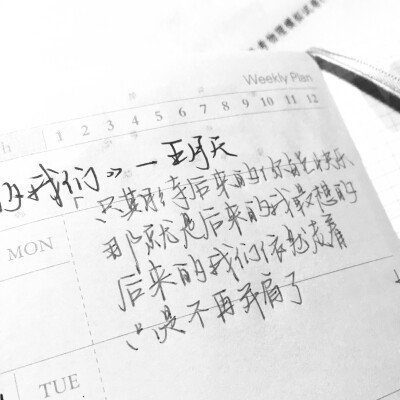 Weekly Plan
h 1 2 3 4 5 6 7 8 9 10 11 12
的我们》— 五月天
MON
只期待后来的你能快乐
那就是后来的我最想的
后来的我们依然走着
只是不再并肩了
TUE